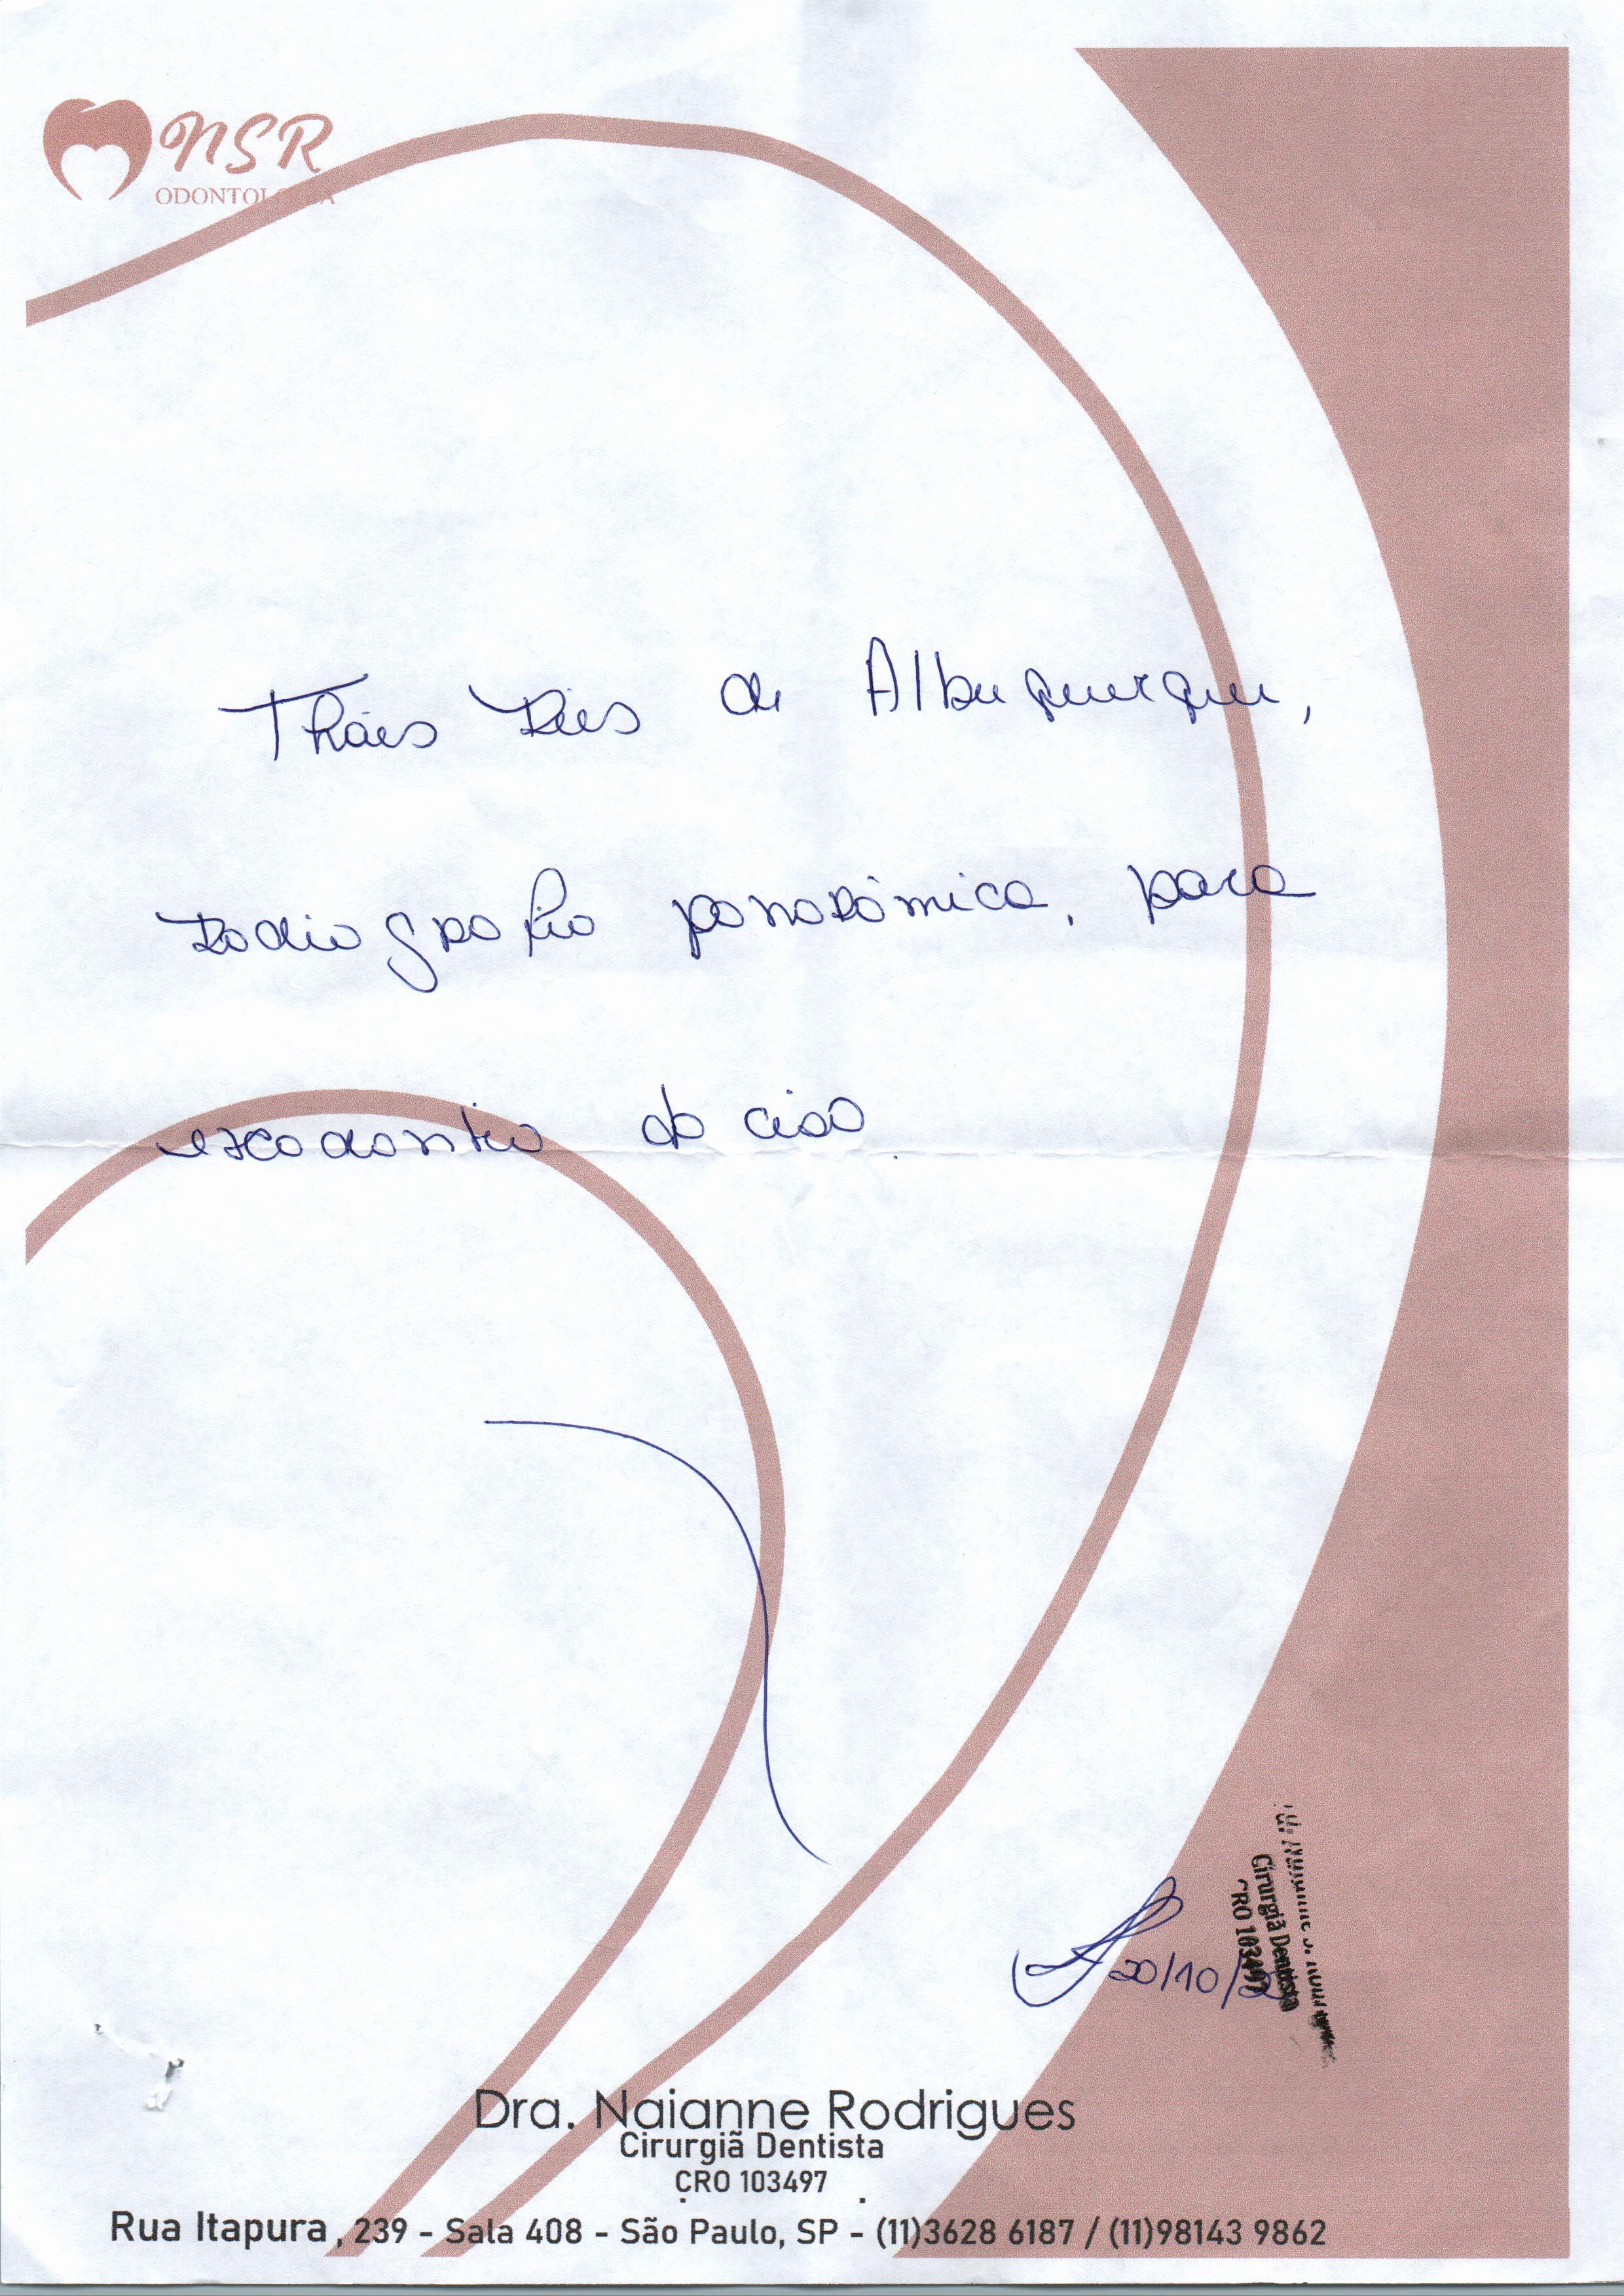 NSR
ODONTOLOGIA
Tháis de Albuquerque,
radiografia panorâmica, para
exodontia do ciso
20/10/
Cirurgiã Dentista
CRO 103497
Dra. Naianne Rodrigues
Cirurgiã Dentista
CRO 103497
Rua Itapura, 239 - Sala 408 - São Paulo, SP - (11)3628 6187 / (11)98143 9862